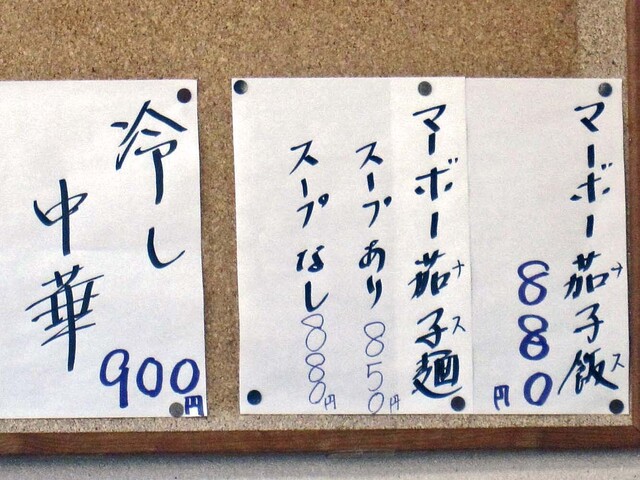 マーボー茄子飯
ナス
880円
マーボー茄子麺
ナス
スープあり 850円
スープなし 880円
冷し
中華
900円